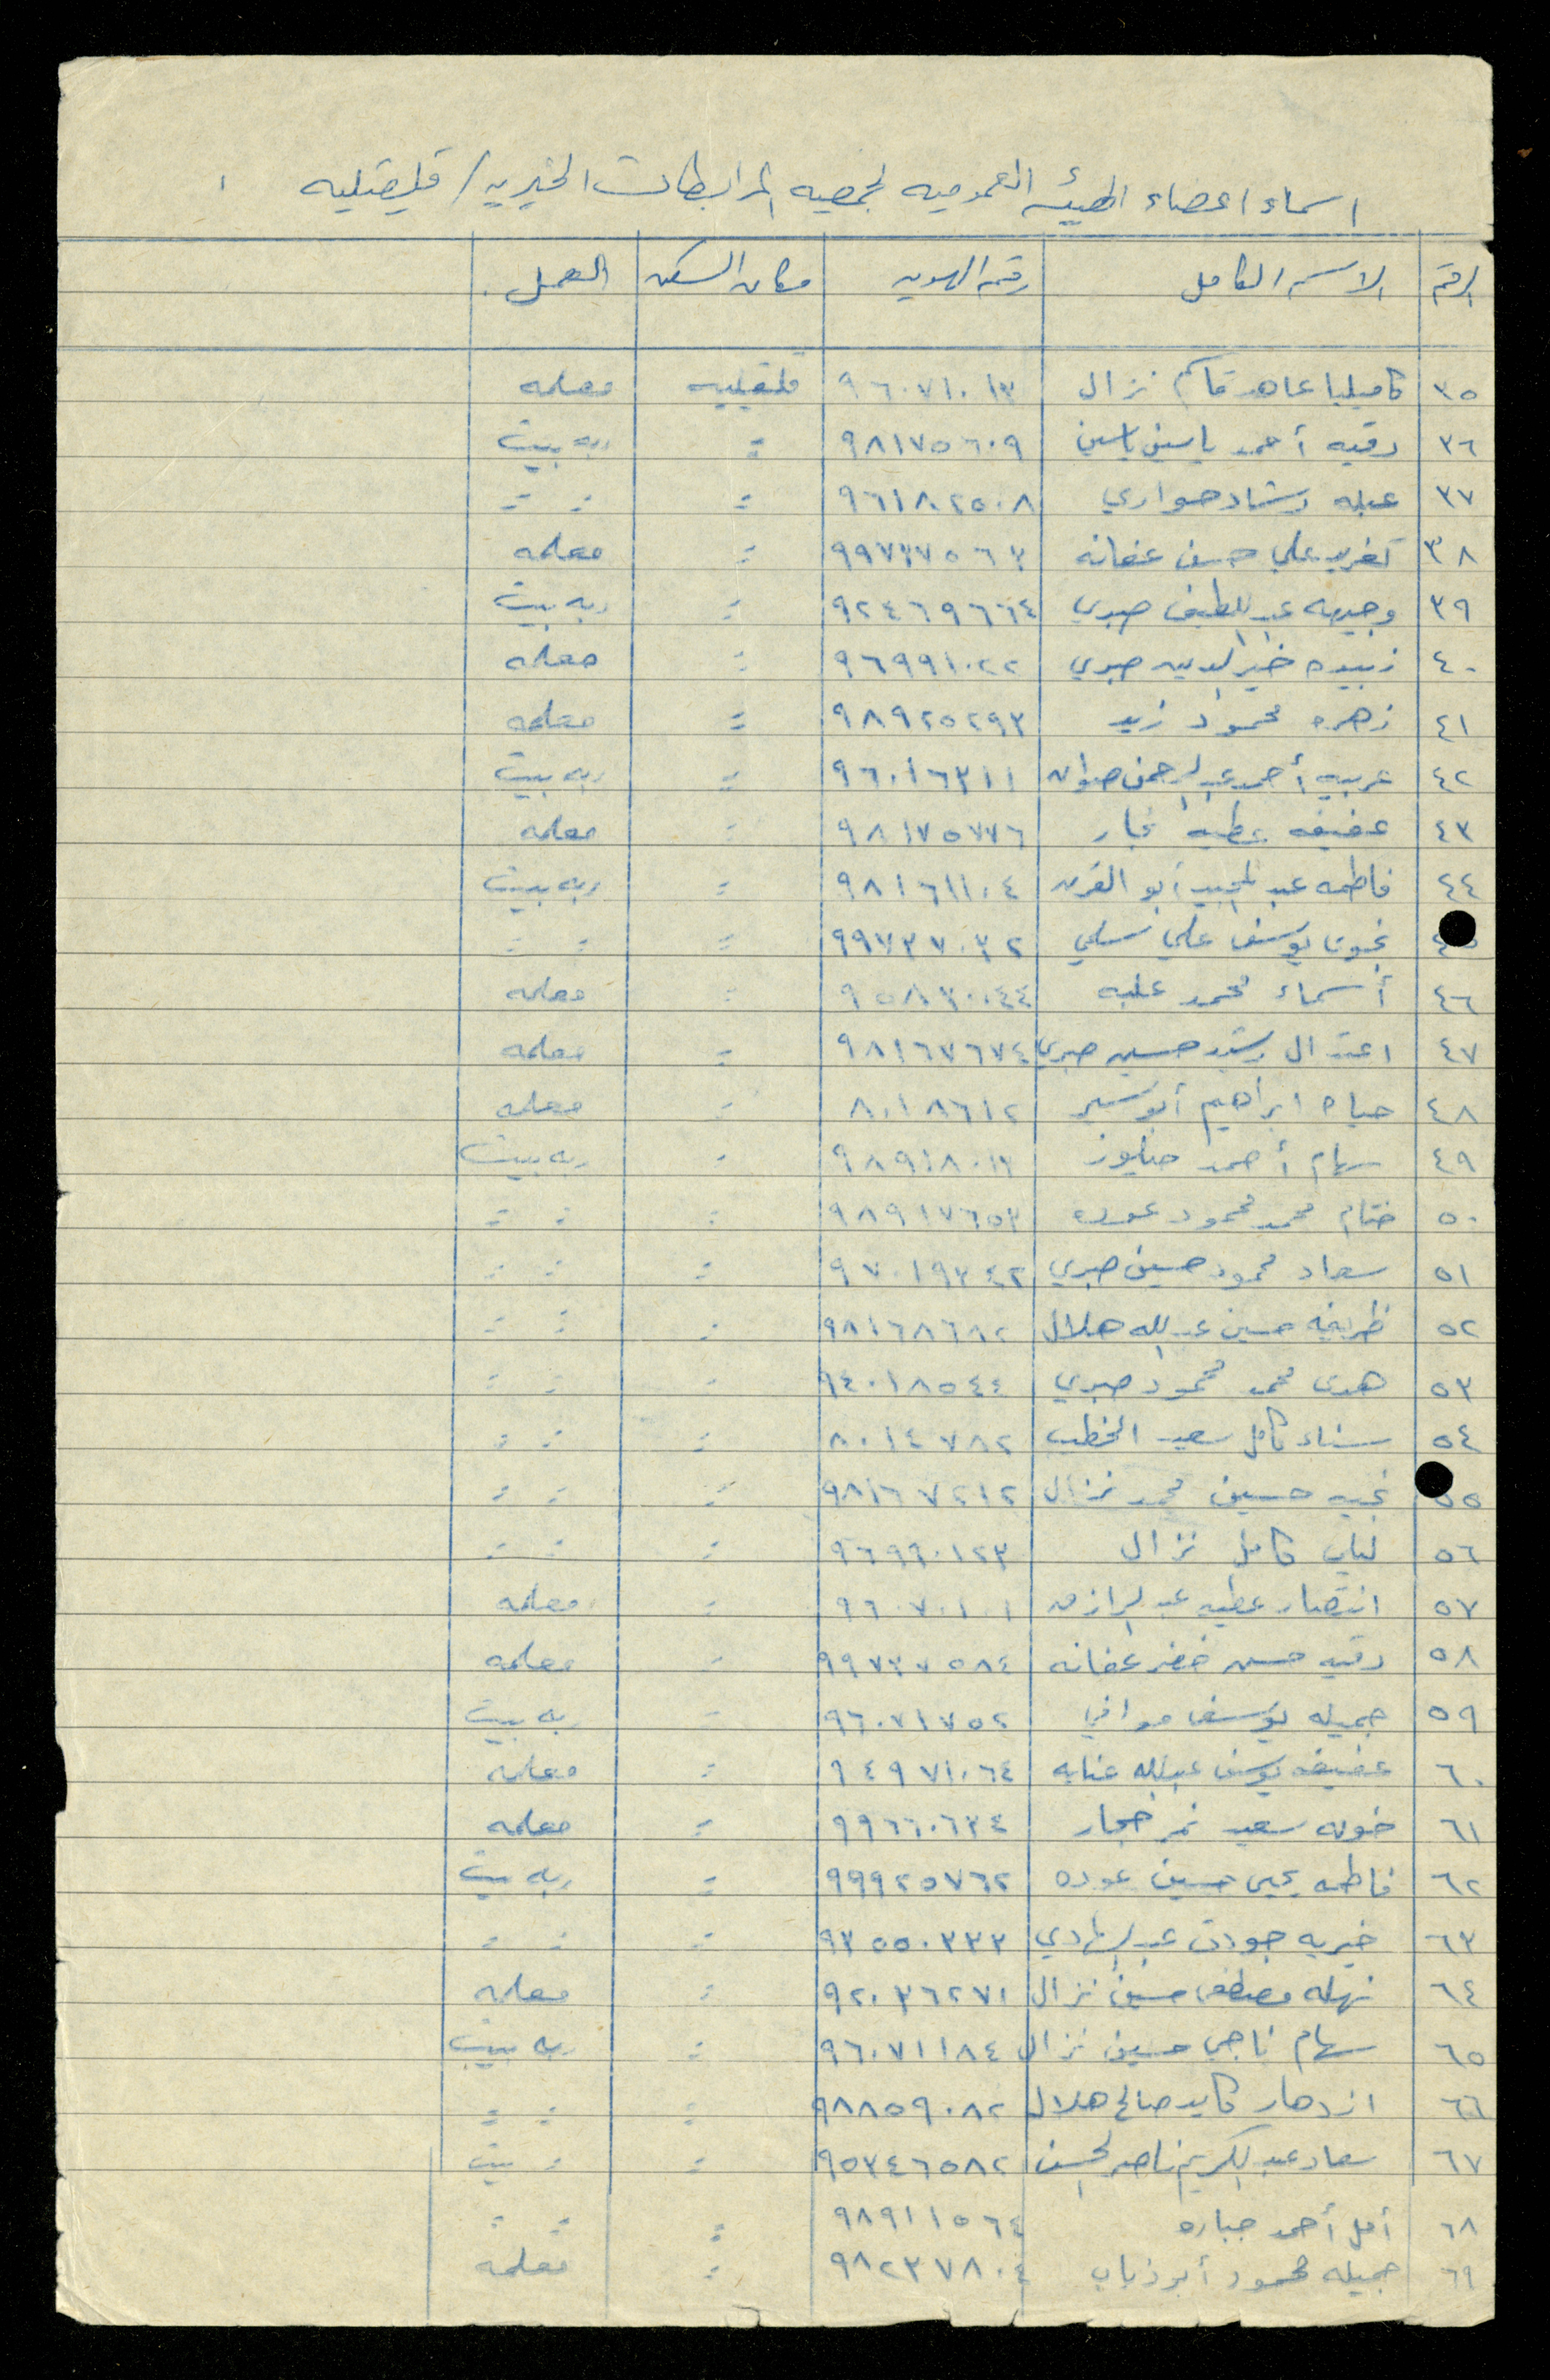 اسماء اعضاء الهيئه العموميه لجمعيه المرابطات الخيريه / قلقيليه
الرقم الاسم الكامل رقم الهويه مكان السكن العمل
٣٥ كاميليا عاهد قاسم نزال ٩٦٠٧١٠١٣ قلقيليه معلمه
٣٦ رقيه أحمد ياسين ياسين ٩٨١٧٥٦٠٩ = ربه بيت
٣٧ عبله رشاد هواري ٩٦١٨٢٥٠٨ = = =
٣٨ تغريد علي حسن عفانه ٩٩٧٣٧٥٦٣ = معلمه
٣٩ وجيهه عبد اللطيف صبري ٩٢٤٦٩٦٦٤ = ربه بيت
٤٠ زبيده خير الدين صبري ٩٦٩٩١٠٢٢ = معلمه
٤١ زهره محمود زيد ٩٨٩٢٥٢٩٣ = معلمه
٤٢ عربيه أحمد عبد الرحمن صوان ٩٦٠١٦٣١١ = ربه بيت
٤٣ عفيفه عطيه نجار ٩٨١٧٥٧٧٦ = معلمه
٤٤ فاطمه عبد المجيد أبو القرن ٩٨١٦١١٠٤ = ربه بيت
نجوى يوسف علي سلمي ٩٩٧٣٧٠٣٢ = = =
٤٦ أسماء محمد علبه ٩٥٨٣٠٠٤٤ = معلمه
٤٧ اعتدال رشيد حسين صبري ٩٨١٦٧٦٧٤ = معلمه
٤٨ حياه ابراهيم أبو سير ٨٠١٨٦١٢ = معلمه
٤٩ سهام أحمد حنيوز ٩٨٩١٨٠١٣ = ربه بيت
٥٠ ختام محمد محمود عوده ٩٨٩١٧٦٥٣ = = =
٥١ سعاد محمود حسين صبري ٩٧٠١٩٣٤٢ = = =
٥٢ ظريفه حسين عبد الله هلال ٩٨١٦٨٦٨٢ = = =
٥٣ هدى محمد محمود صبري ٩٤٠١٨٥٤٤ = = =
٥٤ سناء كامل سعيد الخطيب ٨٠١٤٧٨٢ = = =
٥٥ نجيه حسين محمد نزال ٩٨١٦٧٢١٢ = = =
٥٦ لبنى كامل نزال ٩٦٩٩٠١٢٣ = = =
٥٧ انتصار عطيه عبد الرازق ٩٦٠٧٠١٠١ = معلمه
٥٨ رقيه حسن خضر عفانه ٩٩٧٣٧٥٨٤ = معلمه
٥٩ جميله يوسف موافي ٩٦٠٧١٧٥٢ = ربه بيت
٦٠ عفيفه يوسف عبد الله عنايه ٩٤٩٧١٠٦٤ = معلمه
٦١ خوله سعيد نمر حجار ٩٩٦٦٠٦٣٤ = معلمه
٦٢ فاطمه يحيى حسين عوده ٩٩٩٢٥٧٦٢ = ربه بيت
٦٣ خيريه جودت عبد الهادي ٩٣٥٥٠٣٣٣ = = =
٦٤ نهله مصطفى حسين نزال ٩٢٠٣٦٢٧١ = معلمه
٦٥ سهام ناجي حسين نزال ٩٦٠٧١١٨٤ = ربه بيت
٦٦ ازدهار كايد صالح هلال ٩٨٨٥٩٠٨٢ = = =
٦٧ سعاد عبد الكريم ناصر الحسن ٩٥٣٤٦٥٨٢ = = بيت
٦٨ أمل أحمد جباره ٩٨٩١١٥٦٤ = = =
٦٩ جميله محمود أبو ذياب ٩٨٢٣٧٨٠٤ = معلمه